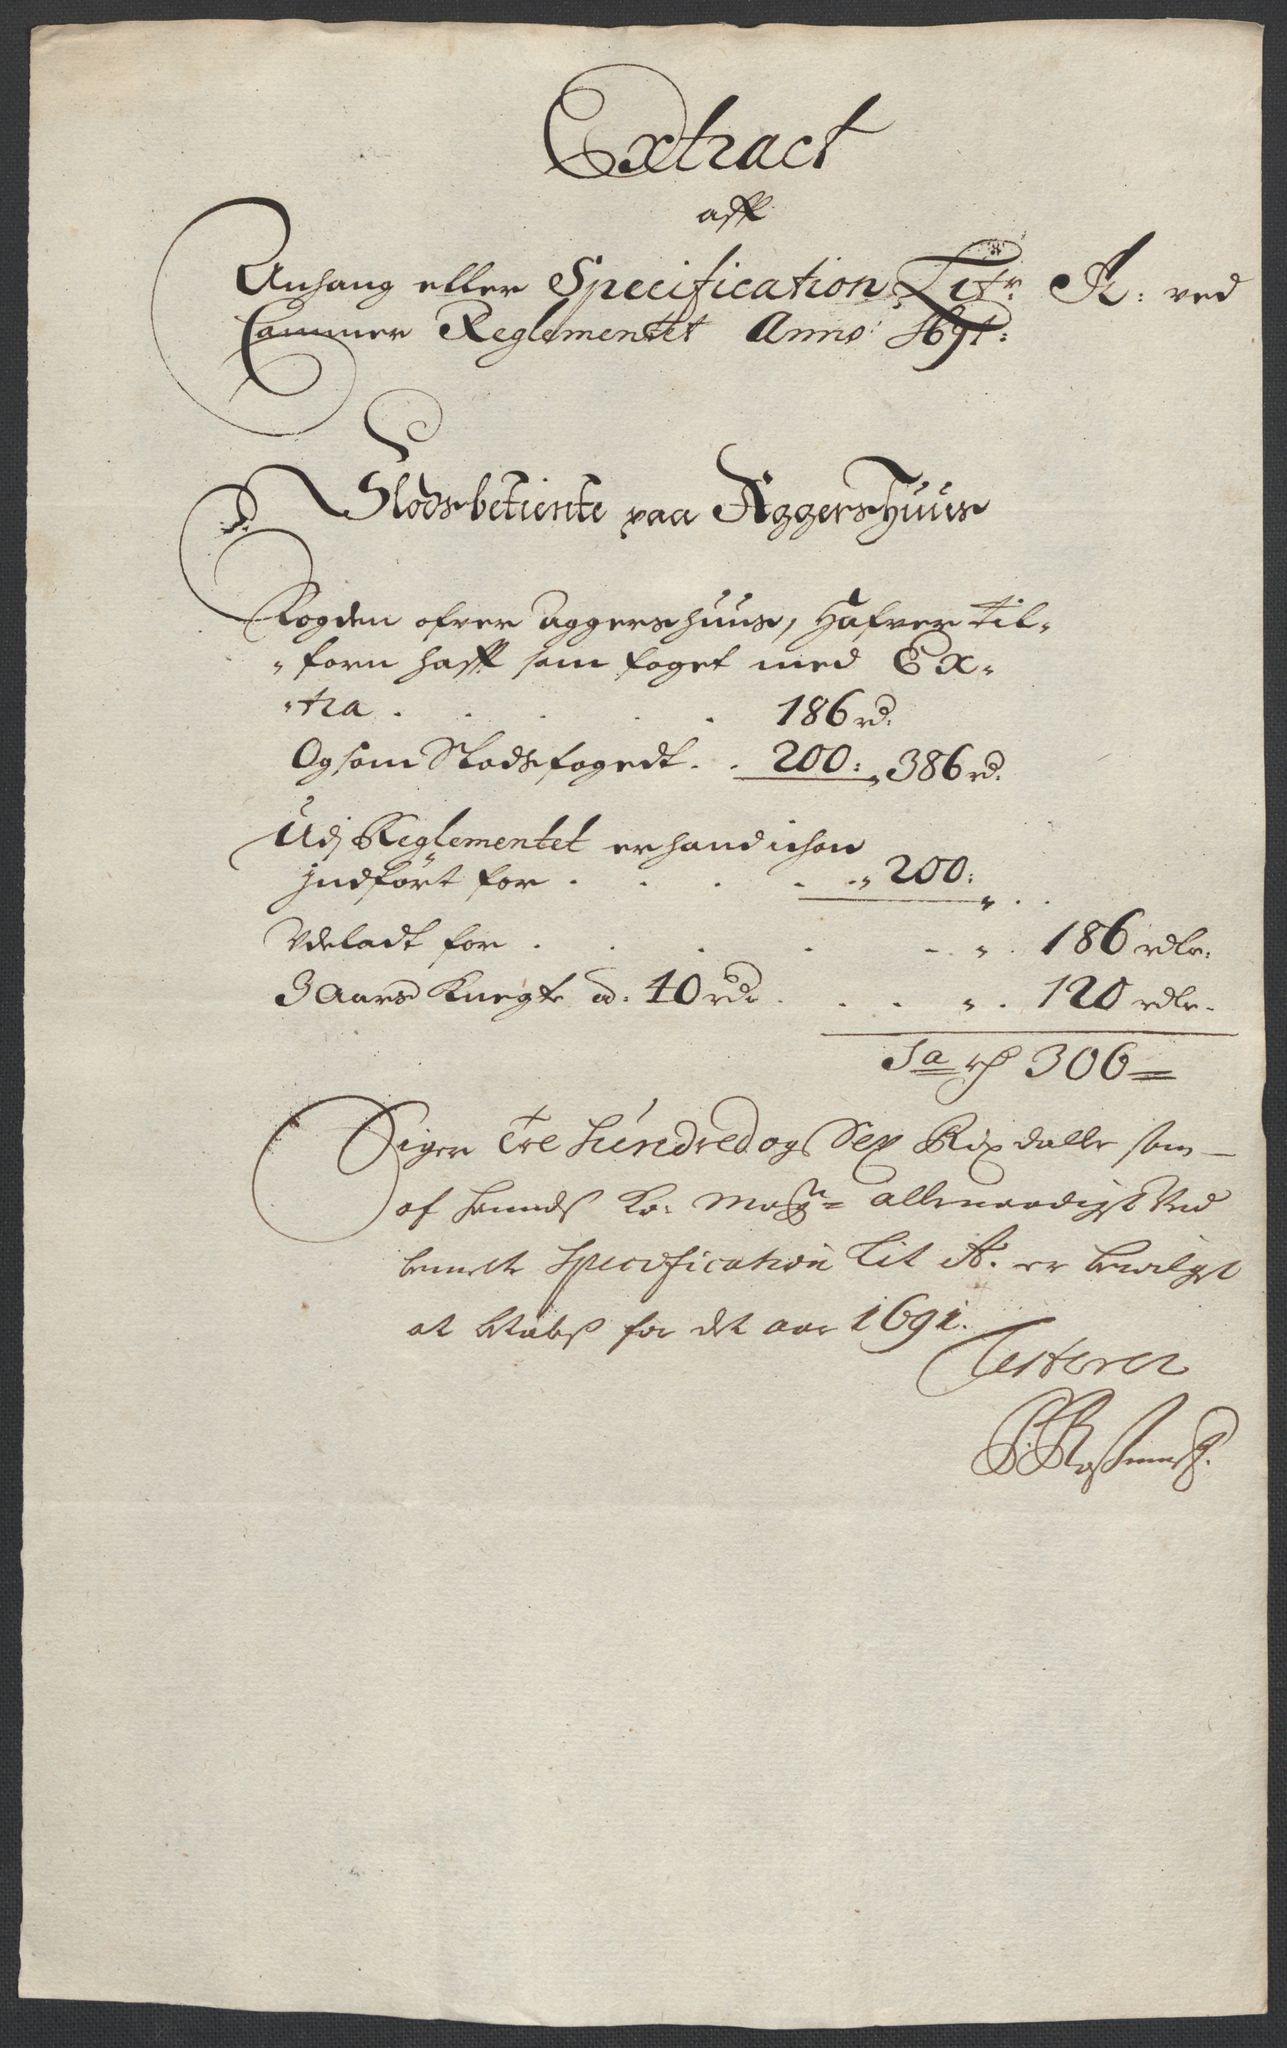 Extract
aff
Anhang eller Specification Litr A: ved
Cammer Reglementet Anno: 1691:
Slodsbetiente paa AggersHuus
Fogden ofver Aggershuus, Hafver til-
-forn hafft som foget med Ex-
-tra . . . . . 186 rd.
Og som Slodsfogedt . . 200: „ 386 rd.
Udj Reglementet er hand ichon
Indført for . . . . . „ 200: „ . .
Udeladt for . . . . . „ . 186 rdlr.
3 Aars Knegte a. 40 rdr . . . „ . 120 rdlr.
Sa rd 306 =
Siger Tre Hundred og Sex Rixdaller som
af hands Ko: Maytt allernaadigst Ved
bemelte Specification Lit A. er bevilget
at betales for det aar 1691.
Testerer